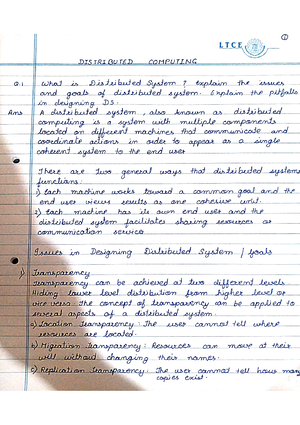 1
LTCE
DISTRIBUTED COMPUTING
Q.1 What is Distributed System? Explain the issues
and goals of distributed system. Explain the pitfalls
in designing DS.
Ans A distributed system, also known as distributed
computing is a system with multiple components
located on different machines that communicate and
coordinate actions in order to appear as a single
coherent system to the end user
There are two general ways that distributed systems
functions:
1) Each machine works toward a common goal and the
end user views results as one cohesive unit.
2) Each machine has its own end user and the
distributed system facilitates sharing resources or
communication service
Issues in Designing Distributed System / goals
1) Transparency
Transparency can be achieved at two different levels
Hiding lower level distribution from higher level or
vice versa. The concept of transparency can be applied to
several aspects of a distributed system.
a) Location Transparency: The user cannot tell where
resources are located.
b) Migration Transparency: Resources can move at their
will without changing their names.
c) Replication Transparency: The user cannot tell how many
copies exist.